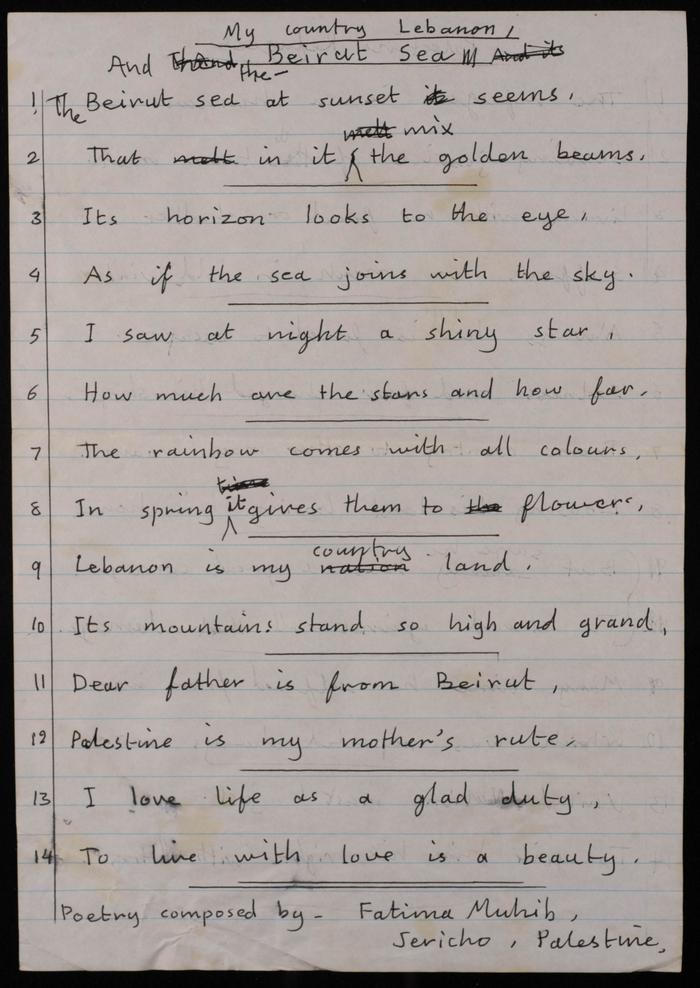 My country Lebanon,
And the Beirut Sea
1 The Beirut sea at sunset seems,
2 That in it mix the golden beams.
3 Its horizon looks to the eye,
4 As if the sea joins with the sky.
5 I saw at night a shiny star,
6 How much are the stars and how far.
7 The rainbow comes with all colours,
8 In spring it gives them to flowers,
9 Lebanon is my country land.
10 Its mountains stand so high and grand,
11 Dear father is from Beirut,
12 Palestine is my mother's rute.
13 I love life as a glad duty,
14 To live with love is a beauty.
Poetry composed by - Fatima Muhib,
Jericho, Palestine,